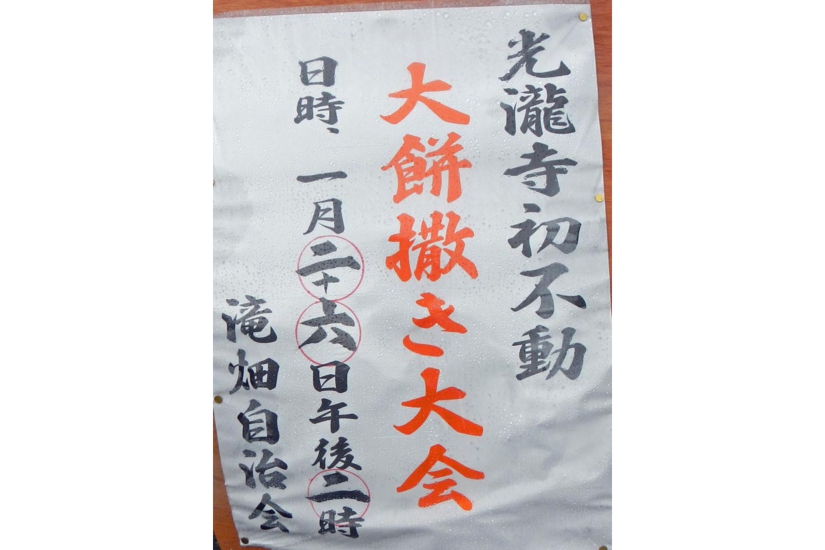 光瀧寺初不動
大餅撒き大会
日時、一月二十六日午後二時
滝畑自治会